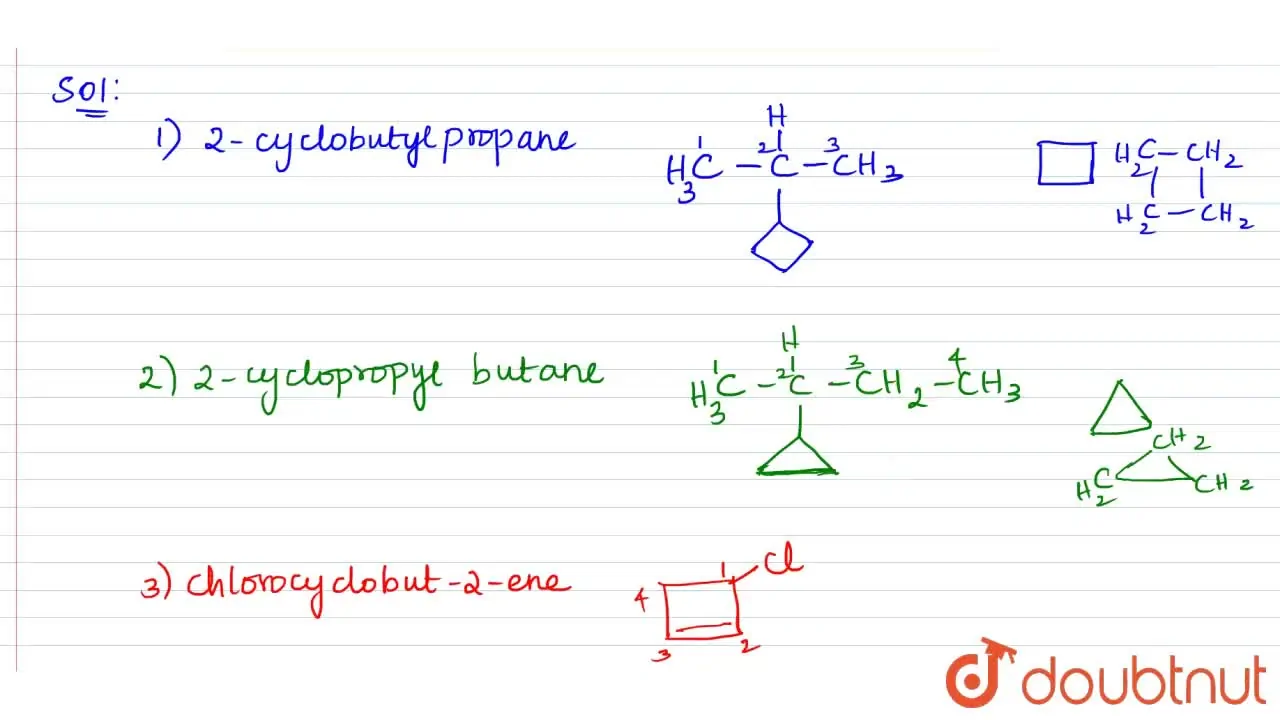 Sol:
1) 2-cyclobutylpropane
H
1 2 3
H3C - C - CH3
H2C - CH2
H2C - CH2
2) 2-cyclopropyl butane
H
1 2 3 4
H3C - C - CH2 - CH3
CH2
H2C CH2
3) chlorocyclobut-2-ene
1 Cl
4
3 2
doubtnut